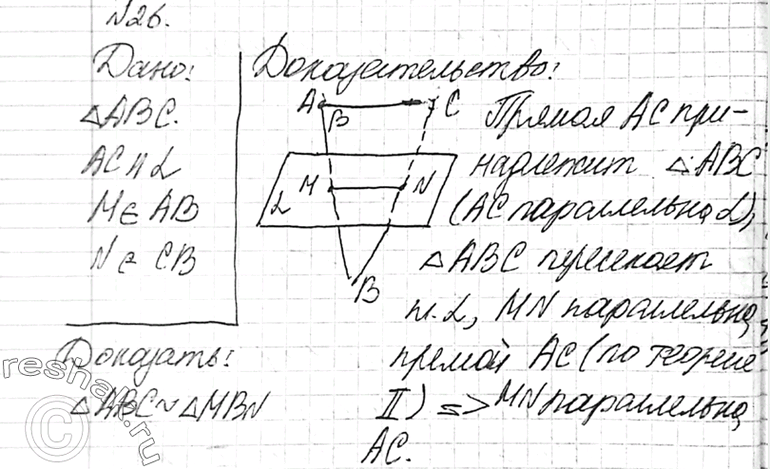 N26.
Дано:
△ABC.
AC ∥ α
M ∈ AB
N ∈ CB
Доказать:
△ABC ~ △MBN
Доказательство:
A C
B
M N
α
B
Прямая AC при-
надлежит △ABC
(AC параллельна α),
△ABC пересекает
пл. α, MN параллельна
прямой AC (по теореме
II) => MN параллельна
AC.
reshak.ru